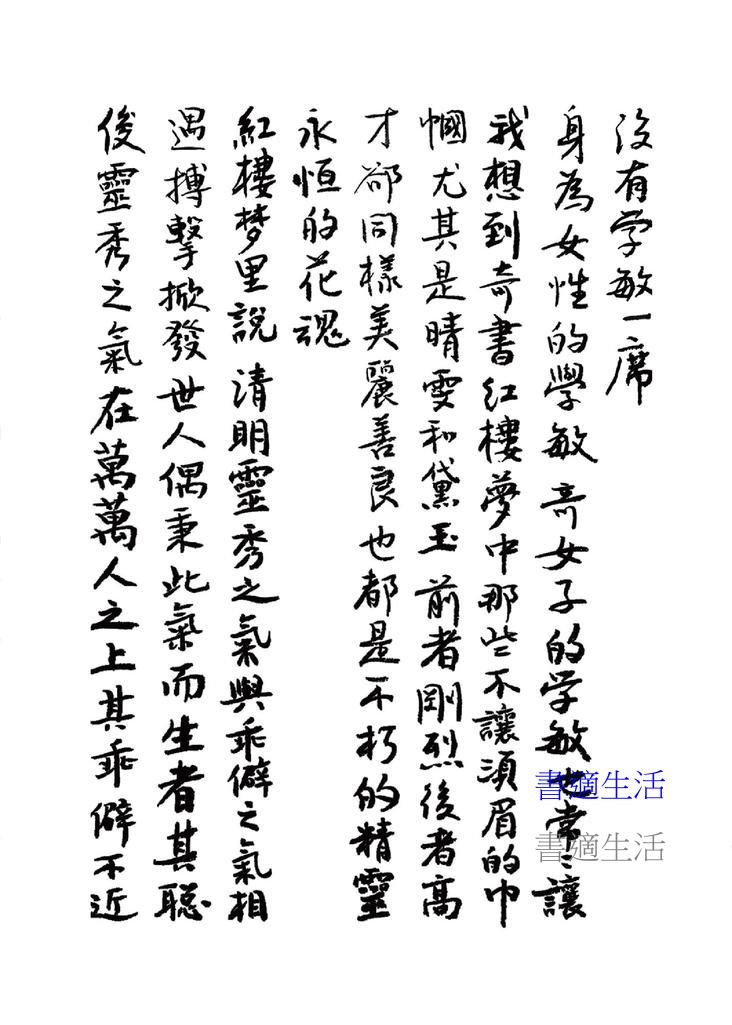 没有学敏一席
身為女性的學敏 奇女子的学敏也常〻讓
我想到奇書紅樓夢中那些不讓須眉的巾
幗尤其是晴雯和黛玉 前者剛烈後者高
才卻同樣美麗善良也都是不朽的精靈
永恒的花魂
紅樓梦里說 清明靈秀之氣與乖僻之氣相
遇搏擊掀發 世人偶秉此氣而生者其聪
俊靈秀之氣在萬萬人之上其乖僻不近
書適生活
書適生活